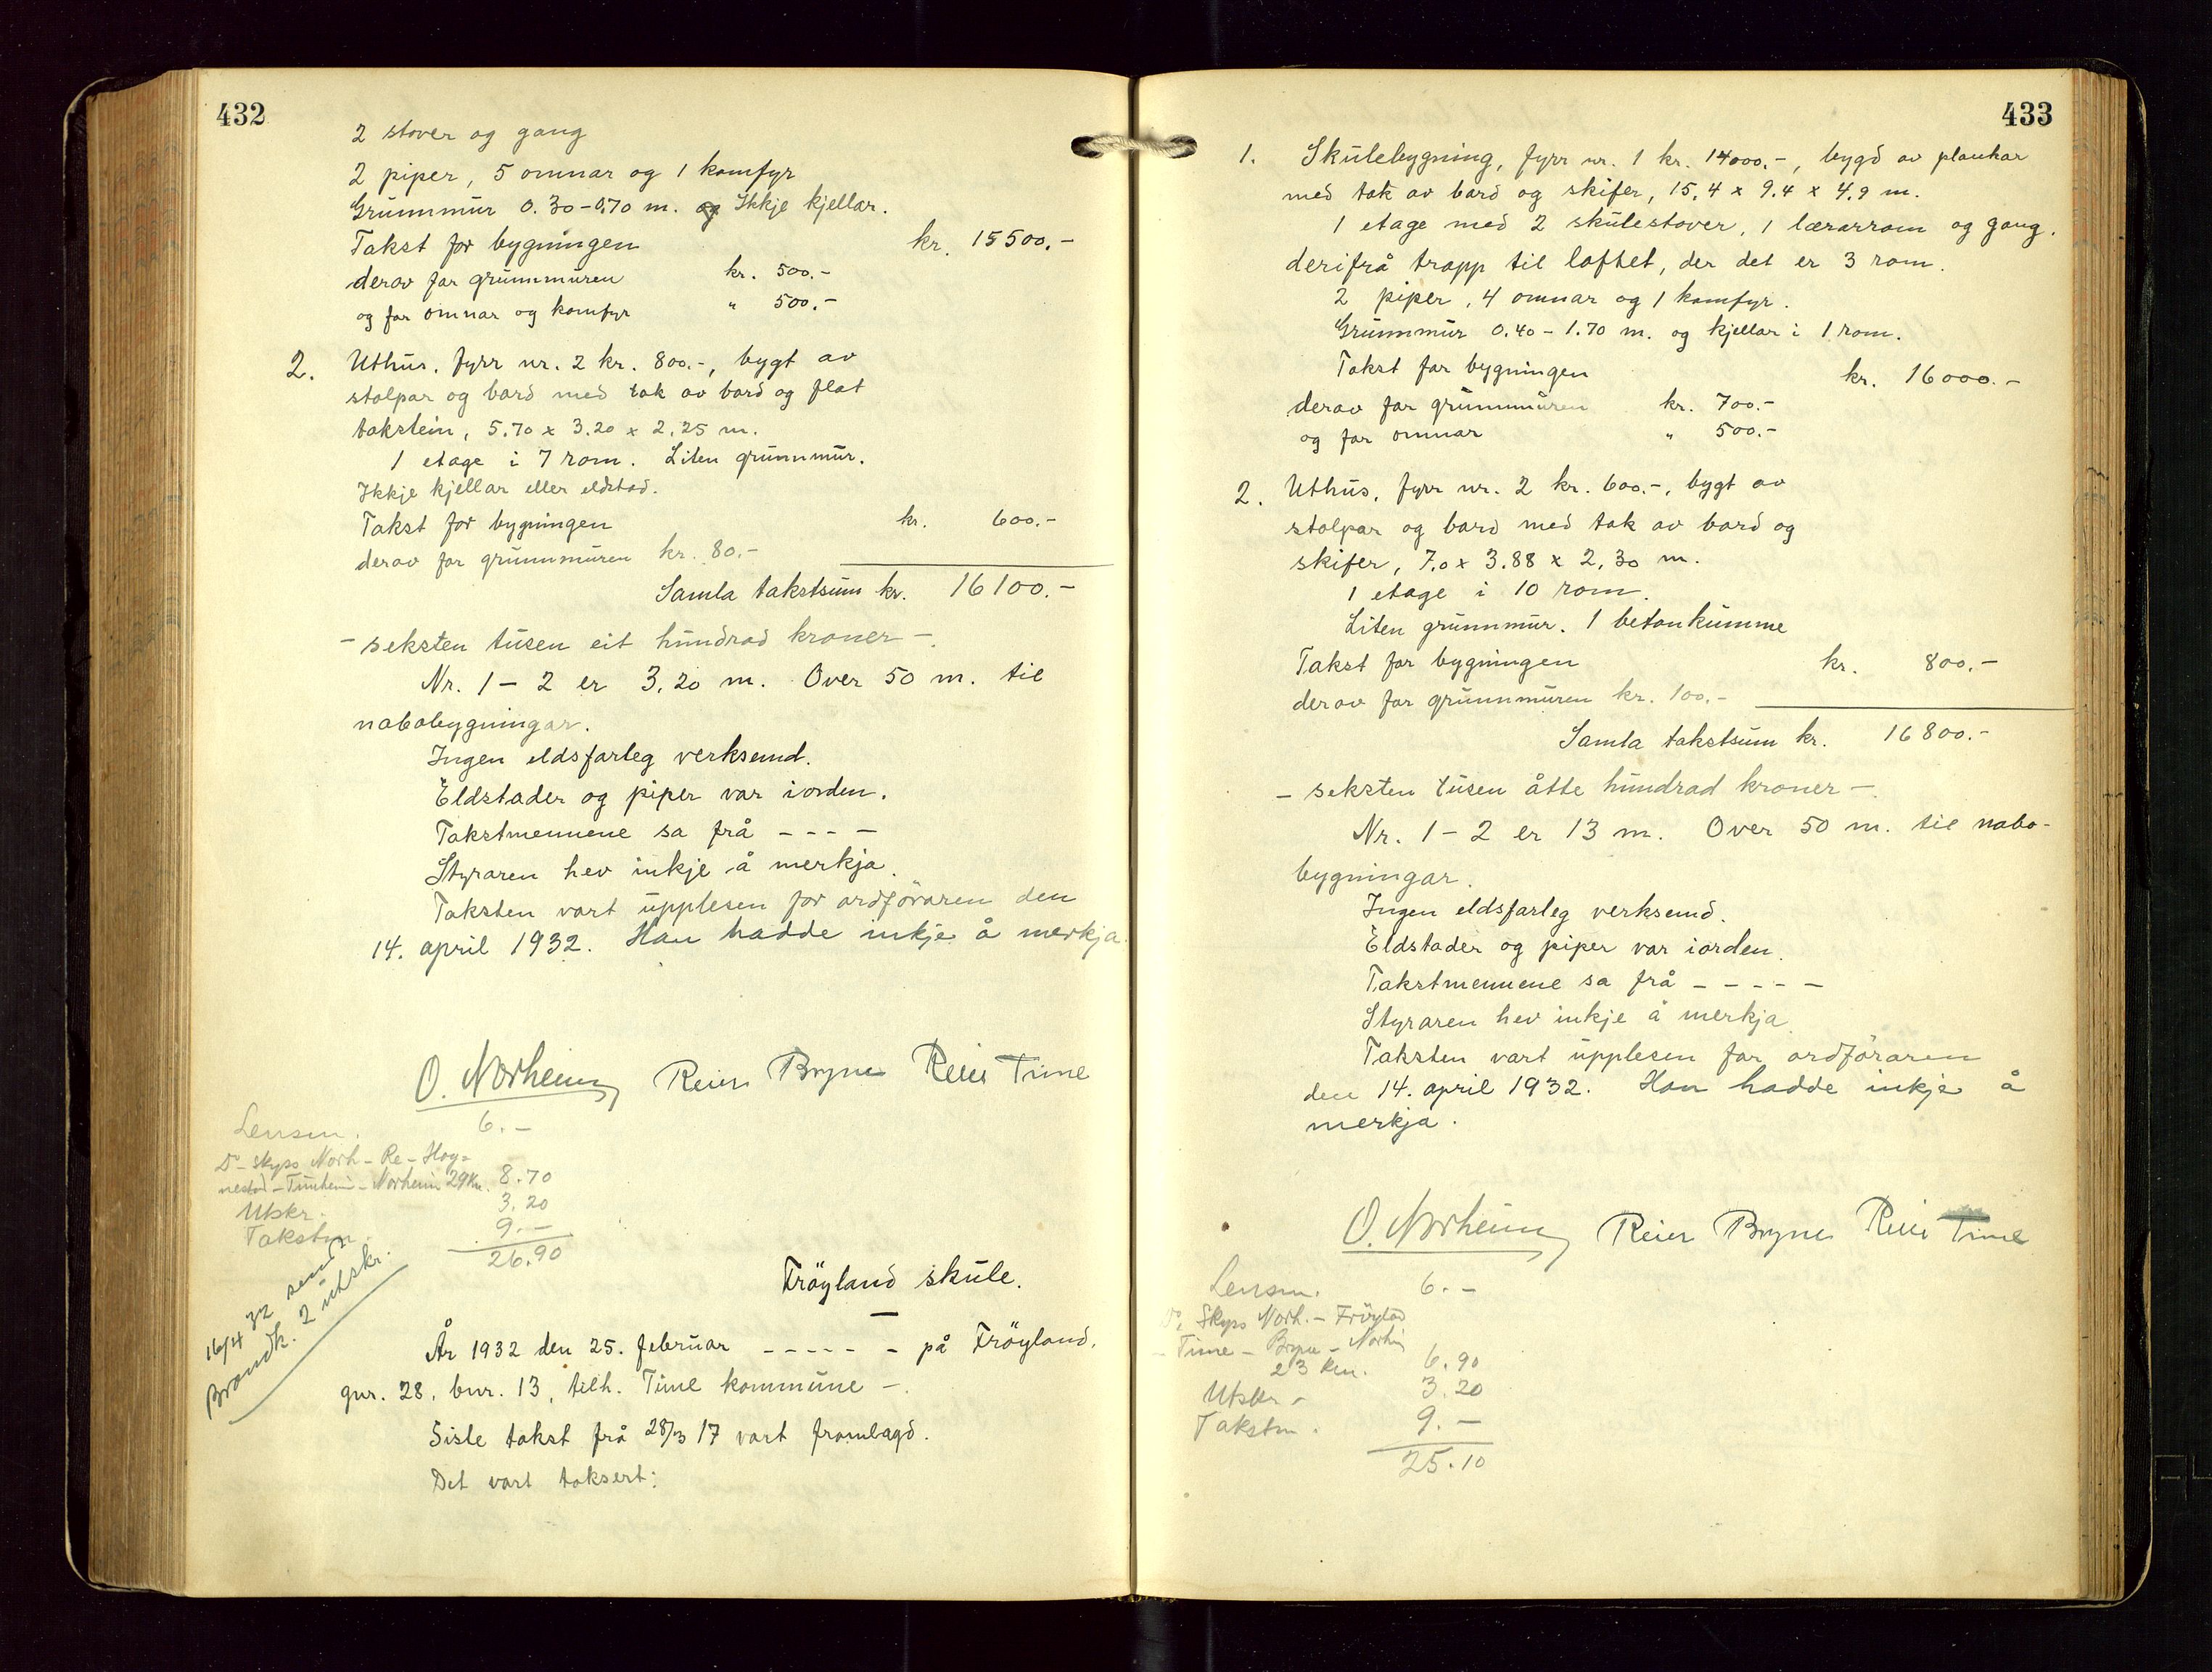 432
2 stover og gang
2 piper, 5 omnar og 1 komfyr
Grunnmur 0.30-0.70 m. Ikkje kjellar.
Takst for bygningen kr. 15500.-
derav for grunnmuren kr. 500.-
og for omnar og komfyr " 500.-
2. Uthus, fyrr nr. 2 kr. 800.-, bygt av
stolpar og bord med tak av bord og flat
takstein, 5.70 x 3.20 x 2.25 m.
1 etage i 7 rom. Liten grunnmur.
Ikkje kjellar eller eldstad.
Takst for bygningen kr. 600.-
derav for grunnmuren kr. 80.-
Samla takstsum kr. 16100.-
- seksten tusen eit hundrad kroner -.
Nr. 1 - 2 er 3,20 m. Over 50 m. til
nabobygningar.
Ingen eldsfarleg verksemd.
Eldstader og piper var iorden.
Takstmennene sa frå - - - -
Styraren hev inkje å merkja.
Taksten vart upplesen for ordföraren den
14. april 1932. Han hadde inkje å merkja.
O. Norheim Reier Bryne Reier Time
Lensm. 6.-
Do skyss Norh - Re - Hog-
nestad - Tunheim - Norheim 29 Km. 8.70
Utskr. 3.20
Takstm. 9.-
26.90
16/4 32 sendt
Brandk. 2 utskr.
Fröyland skule.
År 1932 den 25. februar - - - - - - på Fröyland,
gnr. 28, bnr. 13, tilh. Time kommune -.
Siste takst frå 28/3 17 vart framlagd.
Det vart taksert:
433
1. Skulebygning, fyrr nr. 1 kr. 14000.-, bygd av plankar
med tak av bord og skifer, 15.4 x 9.4 x 4.9 m.
1 etage med 2 skulestover, 1 lærarrom og gang,
derifrå trapp til loftet, der det er 3 rom.
2 piper, 4 omnar og 1 komfyr.
Grunnmur 0.40 - 1.70 m. og kjellar i 1 rom.
Takst for bygningen kr. 16000.-
derav for grunnmuren kr. 700.-
og for omnar " 500.-
2. Uthus, fyrr nr. 2 kr. 600.-, bygt av
stolpar og bord med tak av bord og
skifer, 7.0 x 3.88 x 2,30 m.
1 etage i 10 rom.
Liten grunnmur. 1 betonkumme
Takst for bygningen kr. 800.-
derav for grunnmuren kr. 100.-
Samla takstsum kr. 16800.-
- seksten tusen åtte hundrad kroner -.
Nr. 1 - 2 er 13 m. Over 50 m. til nabo-
bygningar.
Ingen eldsfarleg verksemd.
Eldstader og piper var iorden.
Takstmennene sa frå - - - - -
Styraren hev inkje å merkja.
Taksten vart upplesen for ordföraren
den 14. april 1932. Han hadde inkje å
merkja.
O. Norheim Reier Bryne Reier Time
Lensm. 6.-
Do. Skyss Norh. - Fröylad
- Time - Bryne - Norhm
23 km. 6.90
Utskr - 3.20
Takstm. 9.-
25.10